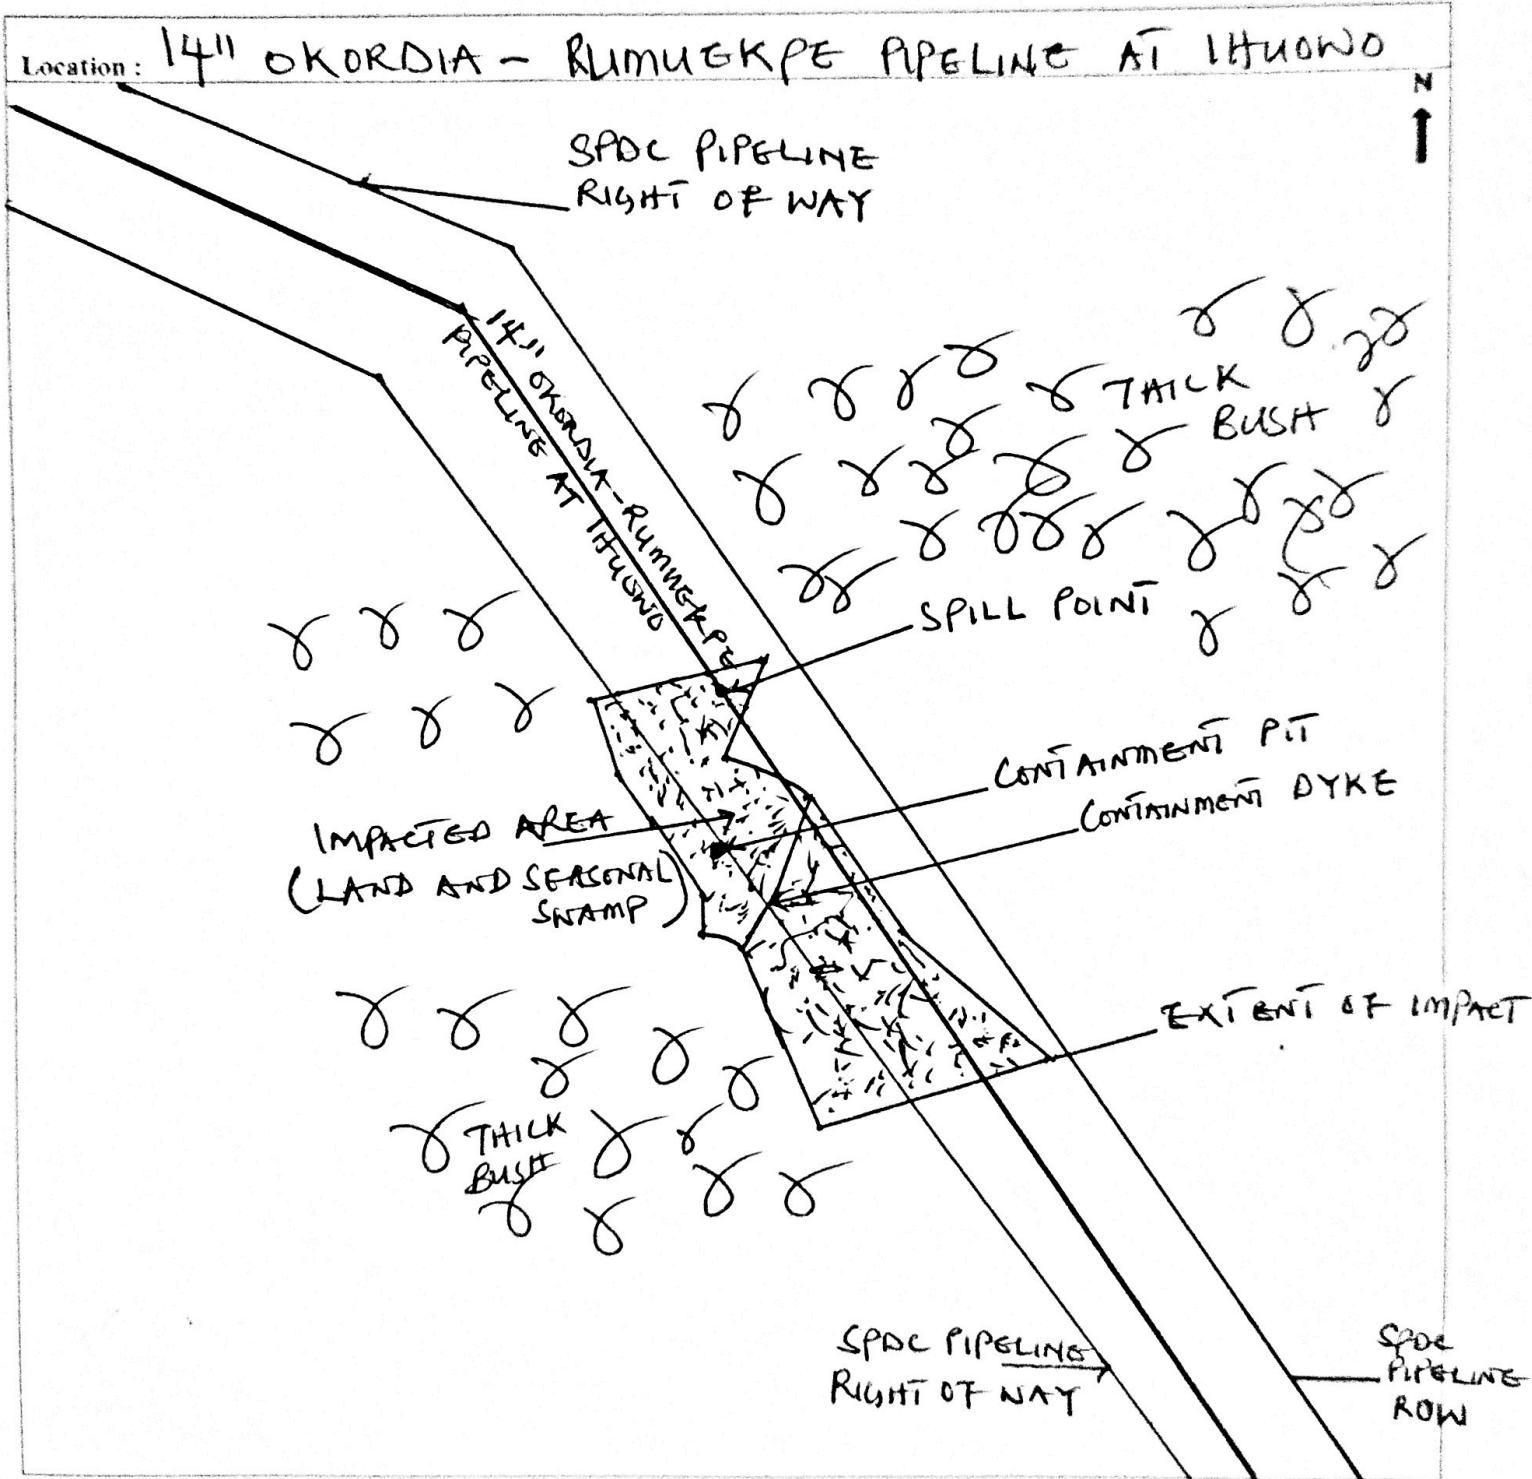 Location : 14" OKORDIA - RUMUEKPE PIPELINE AT IHUOWO
N
SPDC PIPELINE
RIGHT OF WAY
14" OKORDIA-RUMUEKPE
PIPELINE AT IHUOWO
THICK
BUSH
SPILL POINT
CONTAINMENT PIT
CONTAINMENT DYKE
IMPACTED AREA
(LAND AND SEASONAL
SWAMP)
EXTENT OF IMPACT
THICK
BUSH
SPDC PIPELINE
RIGHT OF WAY
SPDC
PIPELINE
ROW